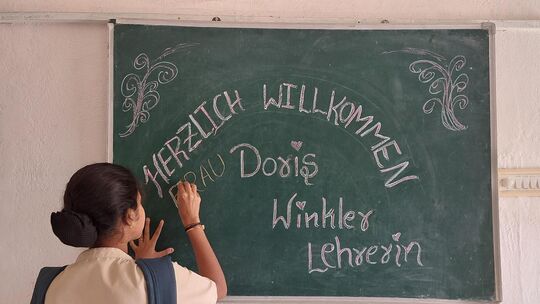 HERZLICH WILLKOMMEN
FRAU Doris
Winkler
Lehrerin